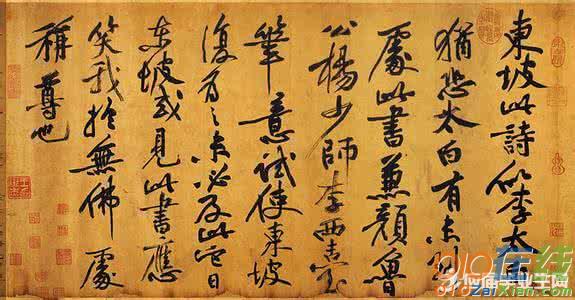 東坡此詩似李太白
猶恐太白有未到
處此書兼顏魯
公楊少師李西臺
筆意試使東坡
復為之未必及此它日
東坡或見此書應
笑我於無佛處
稱尊也
910在线
910ZaiXian.com